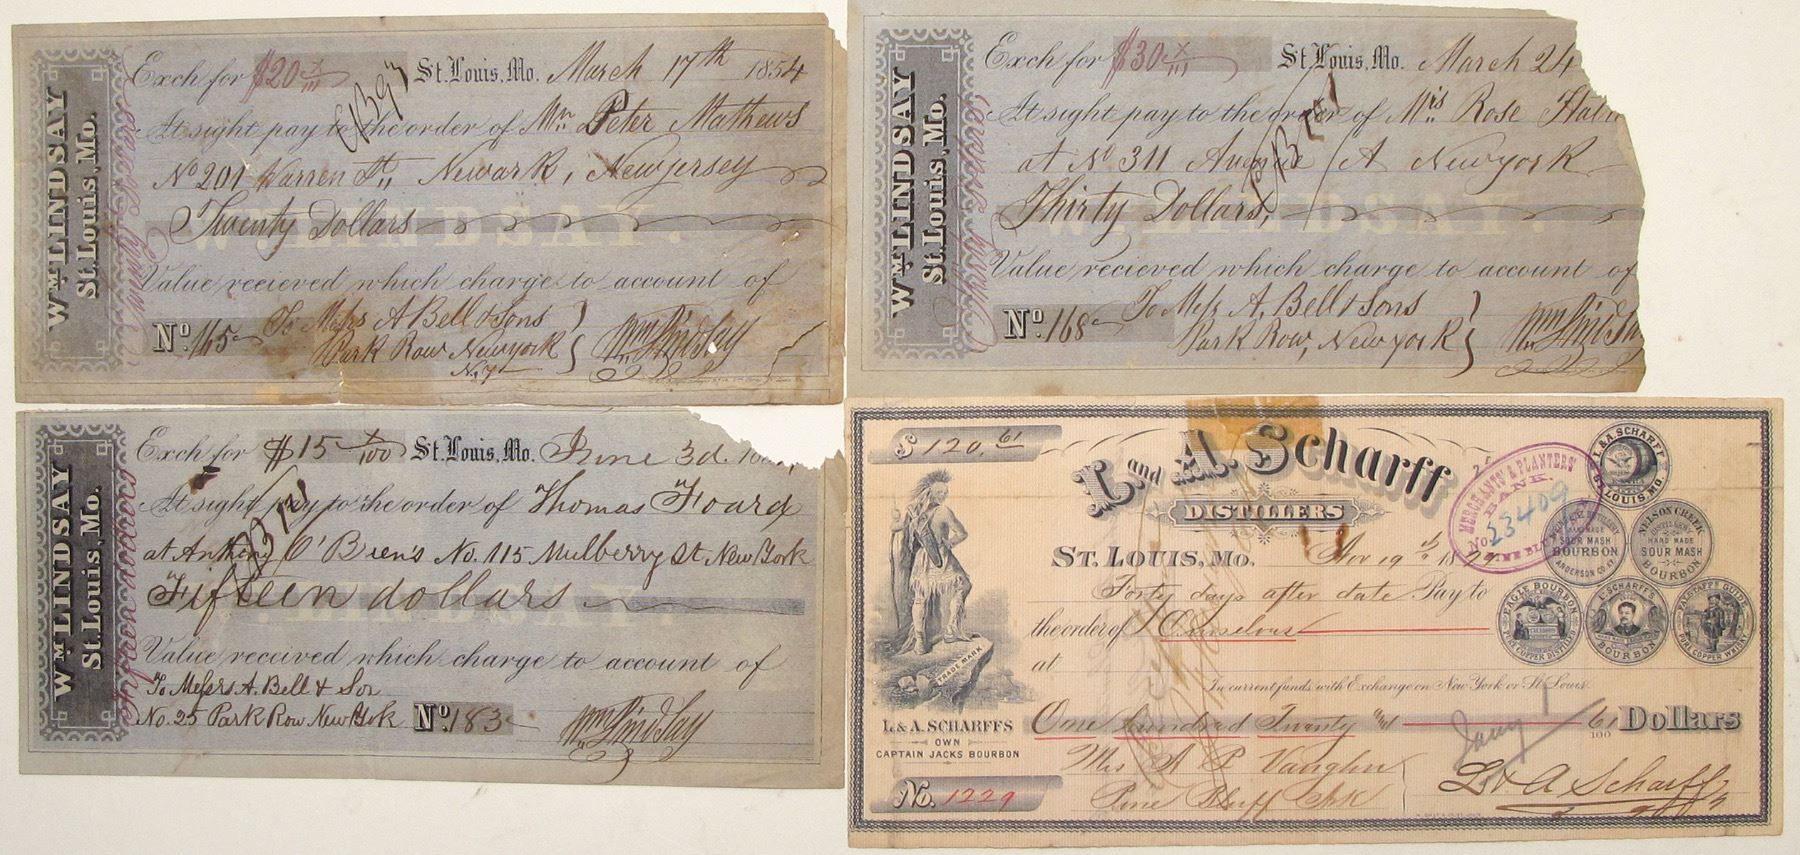 Wm LINDSAY
St. Louis, Mo.
Twenty Dollars
Exch for $20 x/111 St. Louis, Mo. March 17th 1854
At sight pay to the order of Mr. Peter Mathews
No 201 Warren St,, Newark, New jersey
Twenty Dollars
W. LINDSAY.
Value recieved which charge to account of
No. 165 To Messrs A Bell & Sons
Park Row New york
N. Y
Wm Lindsay
Wm LINDSAY
St. Louis, Mo.
Exch for $30 x/111 St. Louis, Mo. March 24
At sight pay to the order of Mrs. Rose
at No 311 Avenue A New york
Thirty Dollars,
W. LINDSAY.
Value recieved which charge to account of
No. 168 To Messrs A. Bell & Sons
Park Row, New york
Wm Lindsay
Wm LINDSAY
St. Louis, Mo.
Fifteen dollars
Exch for $15 x/100 St. Louis, Mo. June 3d.
At sight pay to the order of Thomas Foard
at Anthony O'Brien's No. 115 Mulberry St. New York
Fifteen dollars
LINDSAY.
Value received which charge to account of
To Messrs A. Bell & Son
No. 25 Park Row New York No. 183
Wm Lindsay
$ 120.61
L and A. Scharff
DISTILLERS
St. Louis, Mo. Nov 19th 1879
Forty days after date Pay to
the order of Ourselves
at
In current funds with Exchange on New York or St. Louis
One hundred Twenty and 61/100 Dollars
Mrs A P Vaughn
Pine Bluff Ark
L & A Scharff
Jany 1
No. 1229
TRADE MARK
L. & A. SCHARFFS
OWN
CAPTAIN JACKS BOURBON
MERCHANTS' & PLANTERS'
BANK.
No 23409
PINE BLUFF
L. & A. SCHARFF
ST. LOUIS, MO.
HAND MADE
SOUR MASH
BOURBON
ANDERSON CO. KY.
NELSON CREEK
DISTILLERY
HAND MADE
SOUR MASH
BOURBON
EAGLE BOURBON
PURE COPPER DISTILLED
L. SCHARFF'S
BOURBON
FALSTAFF GUIDE
PURE COPPER WHISKY